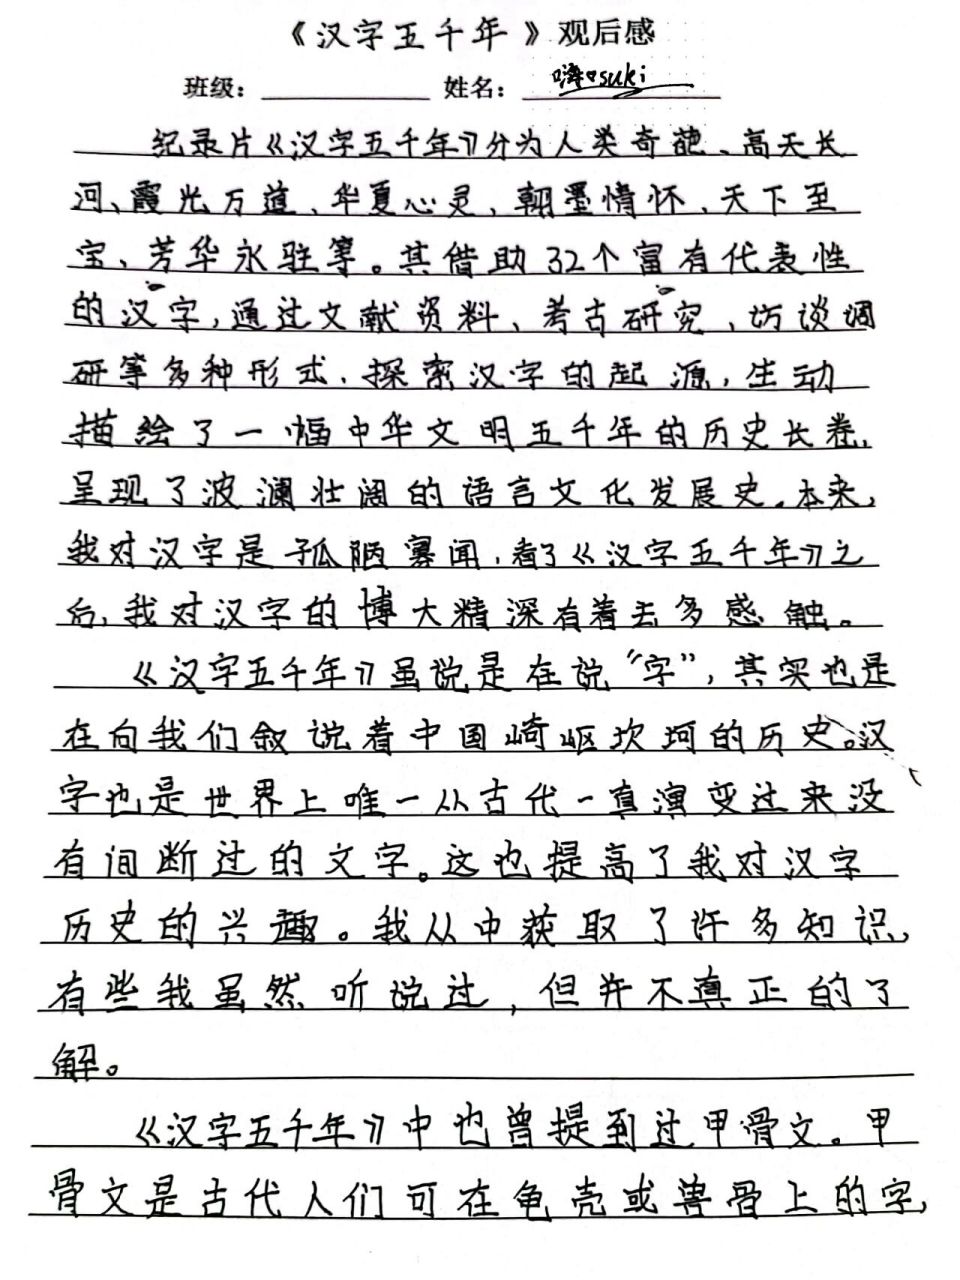 《汉字五千年》观后感
班级： 姓名： 嗨suki
纪录片《汉字五千年》分为人类奇葩、高天长
河、霞光万道、华夏心灵、翰墨情怀、天下至
宝、芳华永驻等。其借助32个富有代表性
的汉字，通过文献资料、考古研究、访谈调
研等多种形式，探索汉字的起源，生动
描绘了一幅中华文明五千年的历史长卷，
呈现了波澜壮阔的语言文化发展史。本来，
我对汉字是孤陋寡闻，看了《汉字五千年》之
后，我对汉字的博大精深有着去多感触。
《汉字五千年》虽说是在说“字”，其实也是
在向我们叙说着中国崎岖坎坷的历史。汉
字也是世界上唯一从古代一直演变过来没
有间断过的文字。这也提高了我对汉字
历史的兴趣。我从中获取了许多知识，
有些我虽然听说过，但并不真正的了
解。
《汉字五千年》中也曾提到过甲骨文。甲
骨文是古代人们可在龟壳或兽骨上的字，